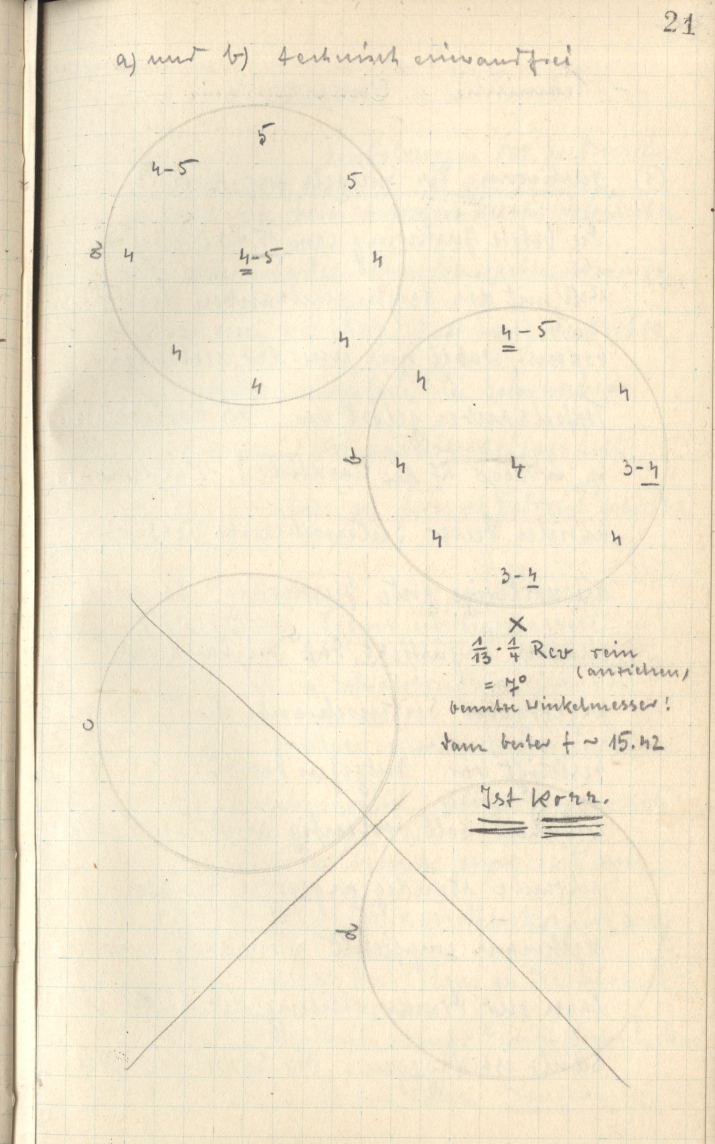 21
a) und b) technisch einwandfrei
5
4-5
5
a
4
4-5
4
4
4
4
4-5
4
4
b
4
4
3-4
4
4
3-4
x
1/13 · 1/4 Rev rein
(anziehen)
= 7°
benutze Winkelmesser!
dann bester f ~ 15.42
c
Ist Korr.
d